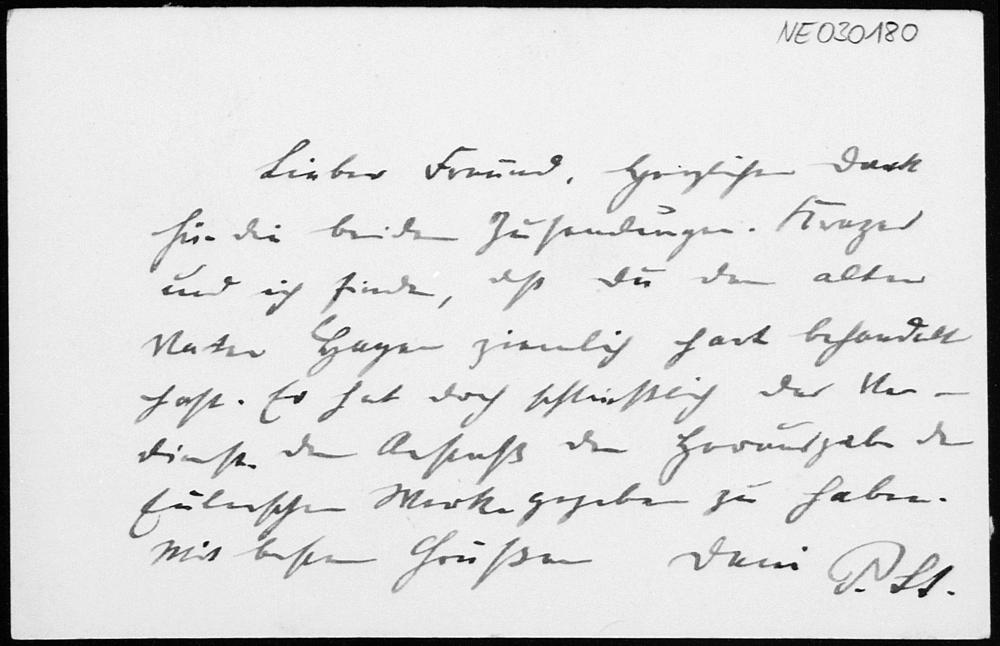 NE030180
Lieber Freund, Herzlichen Dank
für die beiden Zusendungen. Krazer
und ich finden, daß Du den alten
Vater Hagen ziemlich hart behandelt
hast. Er hat doch schließlich das Ver-
dienst den Anstoß der Herausgabe der
Eulerschen Werke gegeben zu haben.
Mit besten Grüßen Dein P. St.